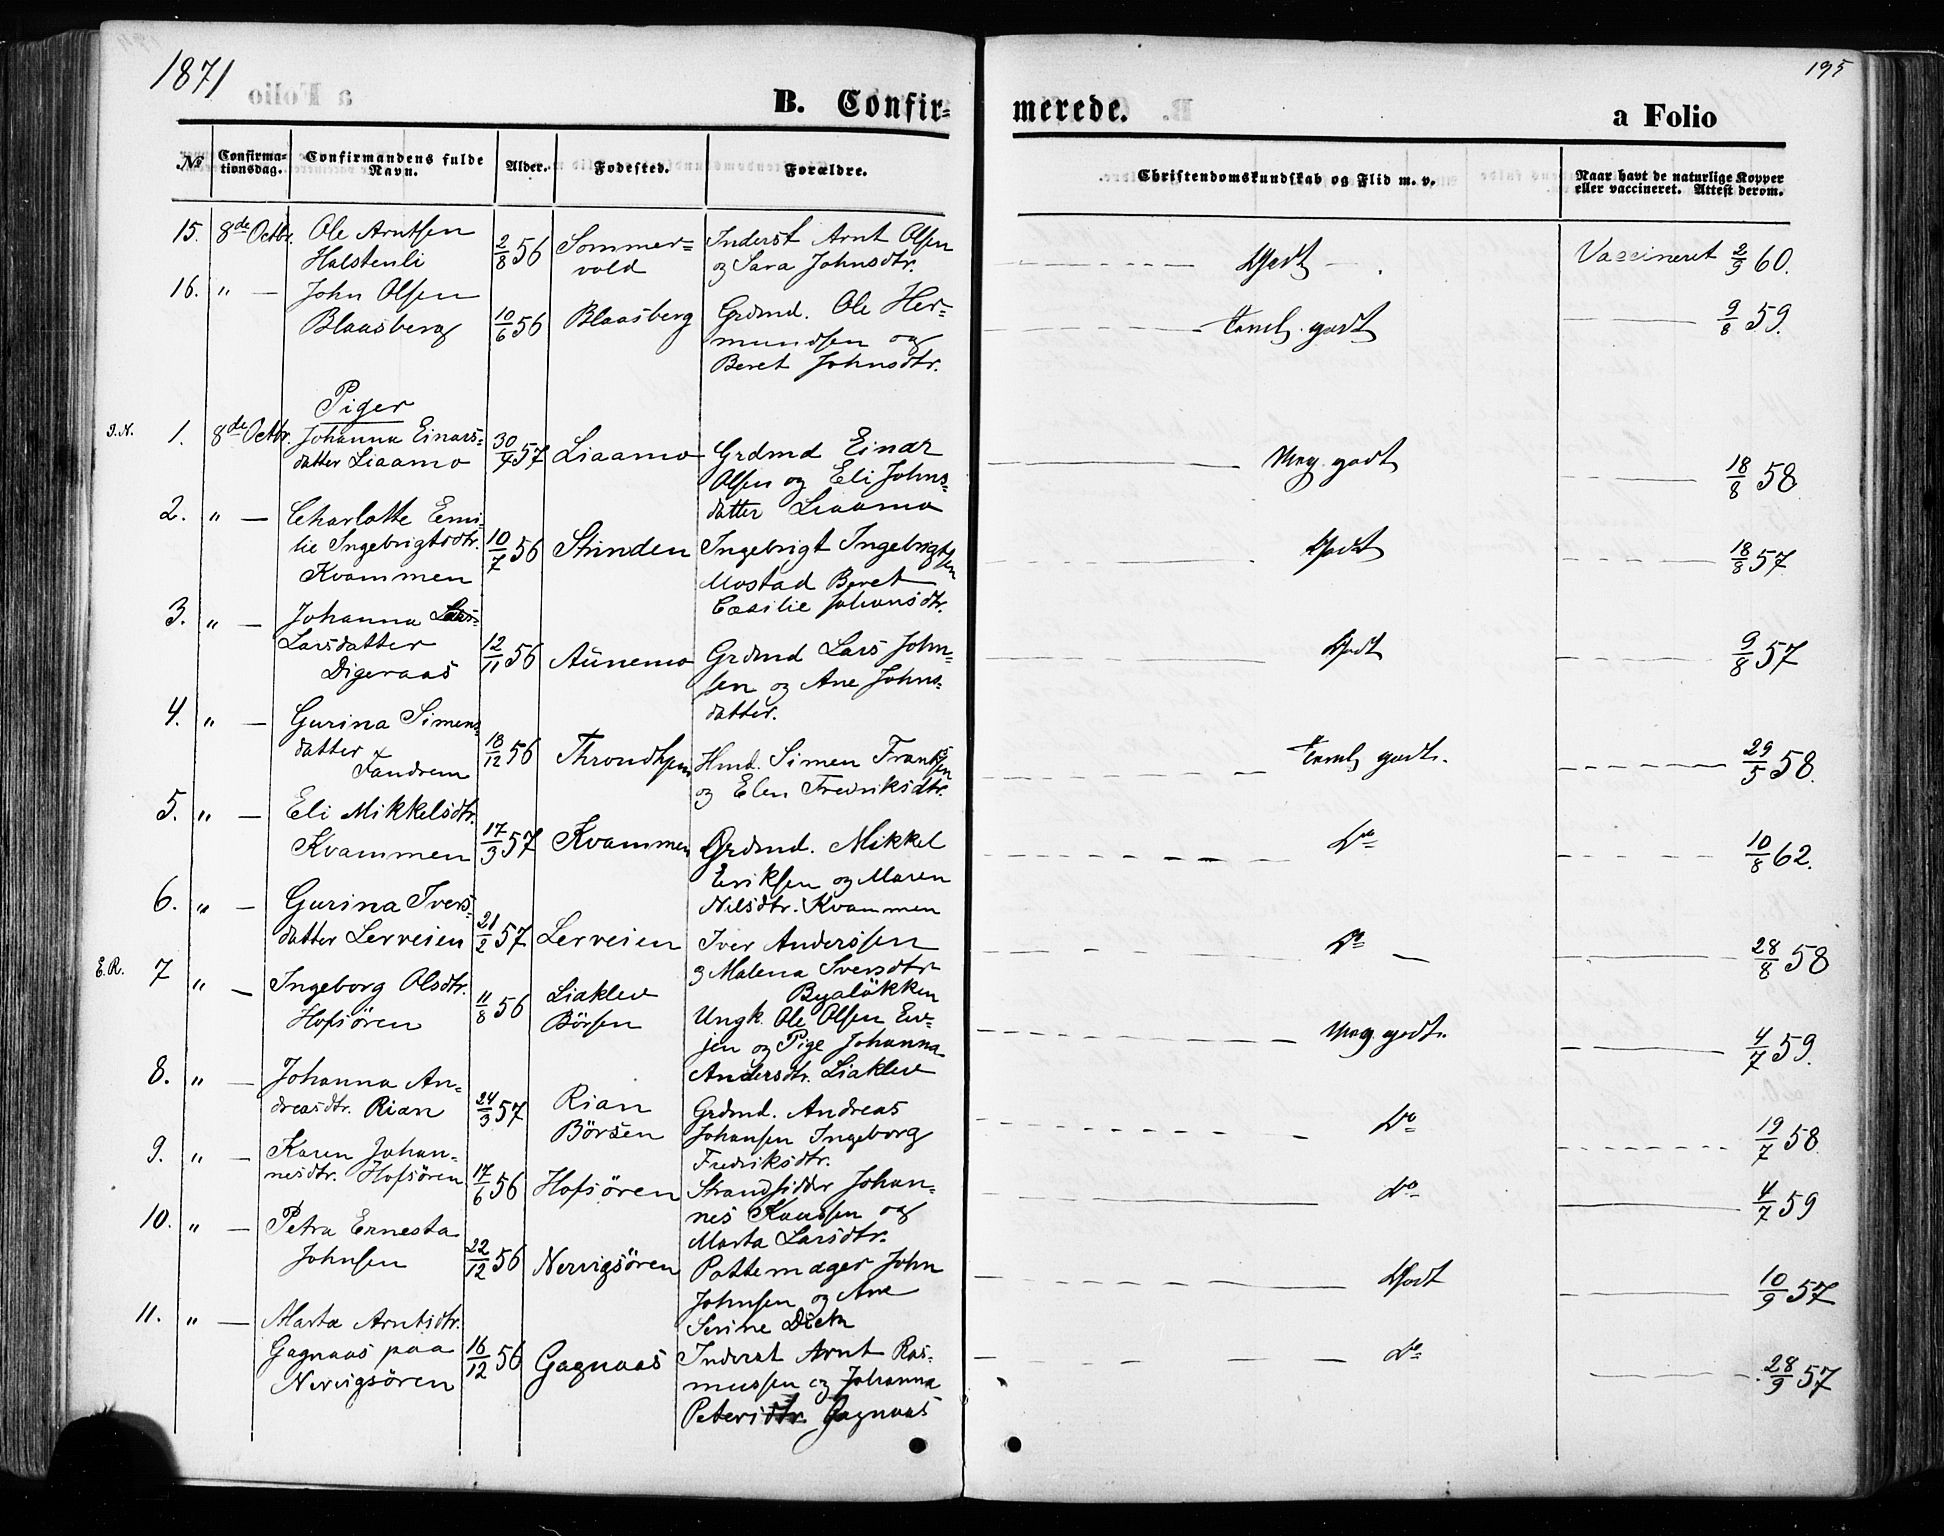 1871
195
B. Confir-
merede.
a Folio
No
Confirma-
tionsdag.
Confirmandens fulde
Navn.
Alder.
Fødested.
Forældre.
Christendomskundskab og Flid m. v.
Naar havt de naturlige Kopper
eller vaccineret. Attest derom.
15. 8de Octbr. Ole Arntsen
Halstenli
2/8 56 Sommer=
vold
Inderst Arnt Olsen
og Sara Johnsdtr.
Godt
Vaccineret 2/9 60.
16. " — John Olsen
Blaasberg
10/6 56 Blaasberg
Grdmd. Ole Her=
mundsen og
Beret Johnsdtr.
Teml. godt
9/8 59.
Piger
J.N. 1. 8de Octbr. Johanna Einars=
datter Liaamo
30/4 57 Liaamo
Grdmd Einar
Olsen og Eli Johns=
datter Liaamo
Meg. godt
18/8 58
2. " — Charlotte Emi=
lie Ingebrigtsdtr.
Kvammen
10/7 56 Strinden
Ingebrigt Ingebrigtsen
Mostad Beret
Cecilie Johansdtr.
Godt
18/8 57
3. " — Johanna
Larsdatter
Digeraas
12/11 56 Aunemo
Grdmd Lars John=
sen og Ane Johns=
datter.
Godt
9/8 57
4. " — Gurina Simens=
datter
Fandrem
18/12 56 Throndhjem
Hmd. Simen Frantsen
og Elen Fredriksdtr.
Teml. godt.
29/5 58.
5. " — Eli Mikkelsdtr.
Kvammen
17/3 57 Kvammen
Grdmd. Mikkel
Eriksen og Maren
Nilsdtr. Kvammen
Do
10/8 62.
6. " — Gurina Ivers=
datter Lerveien
21/2 57 Lerveien
Iver Anderssen
og Malena Iversdtr
Byaløkken
Do
28/8 58
E.R. 7 " — Ingeborg Olsdtr.
Hofsøren
11/8 56 Liaklev
Børsen
Ungk. Ole Olsen Ev=
jen og Pige Johanna
Andersdtr. Liaklev
Meg. godt.
4/7 59.
8. " — Johanna An=
dreasdtr. Rian
24/3 57 Rian
Børsen
Grdmd. Andreas
Johansen Ingeborg
Fredriksdtr.
Do
19/7 58
9. " — Karen Johan=
nesdtr. Hofsøren
17/6 56 Hofsøren
Strandsidder Johan=
nes Knudsen og
Marta Larsdtr.
Do
4/7 59
10. " — Petra Ernesta
Johnsen
22/12 56 Nervigsøren
Pottemager John
Johnsen og Ane
Serine
Godt
10/9 57
11. " — Marta Arntsdtr.
Gagnaas paa
Nervigsøren
16/12 56 Gagnaas
Inderst Arnt Ras=
mussen og Johanna
Petersdtr. Gagnaas
Do
28/9 57